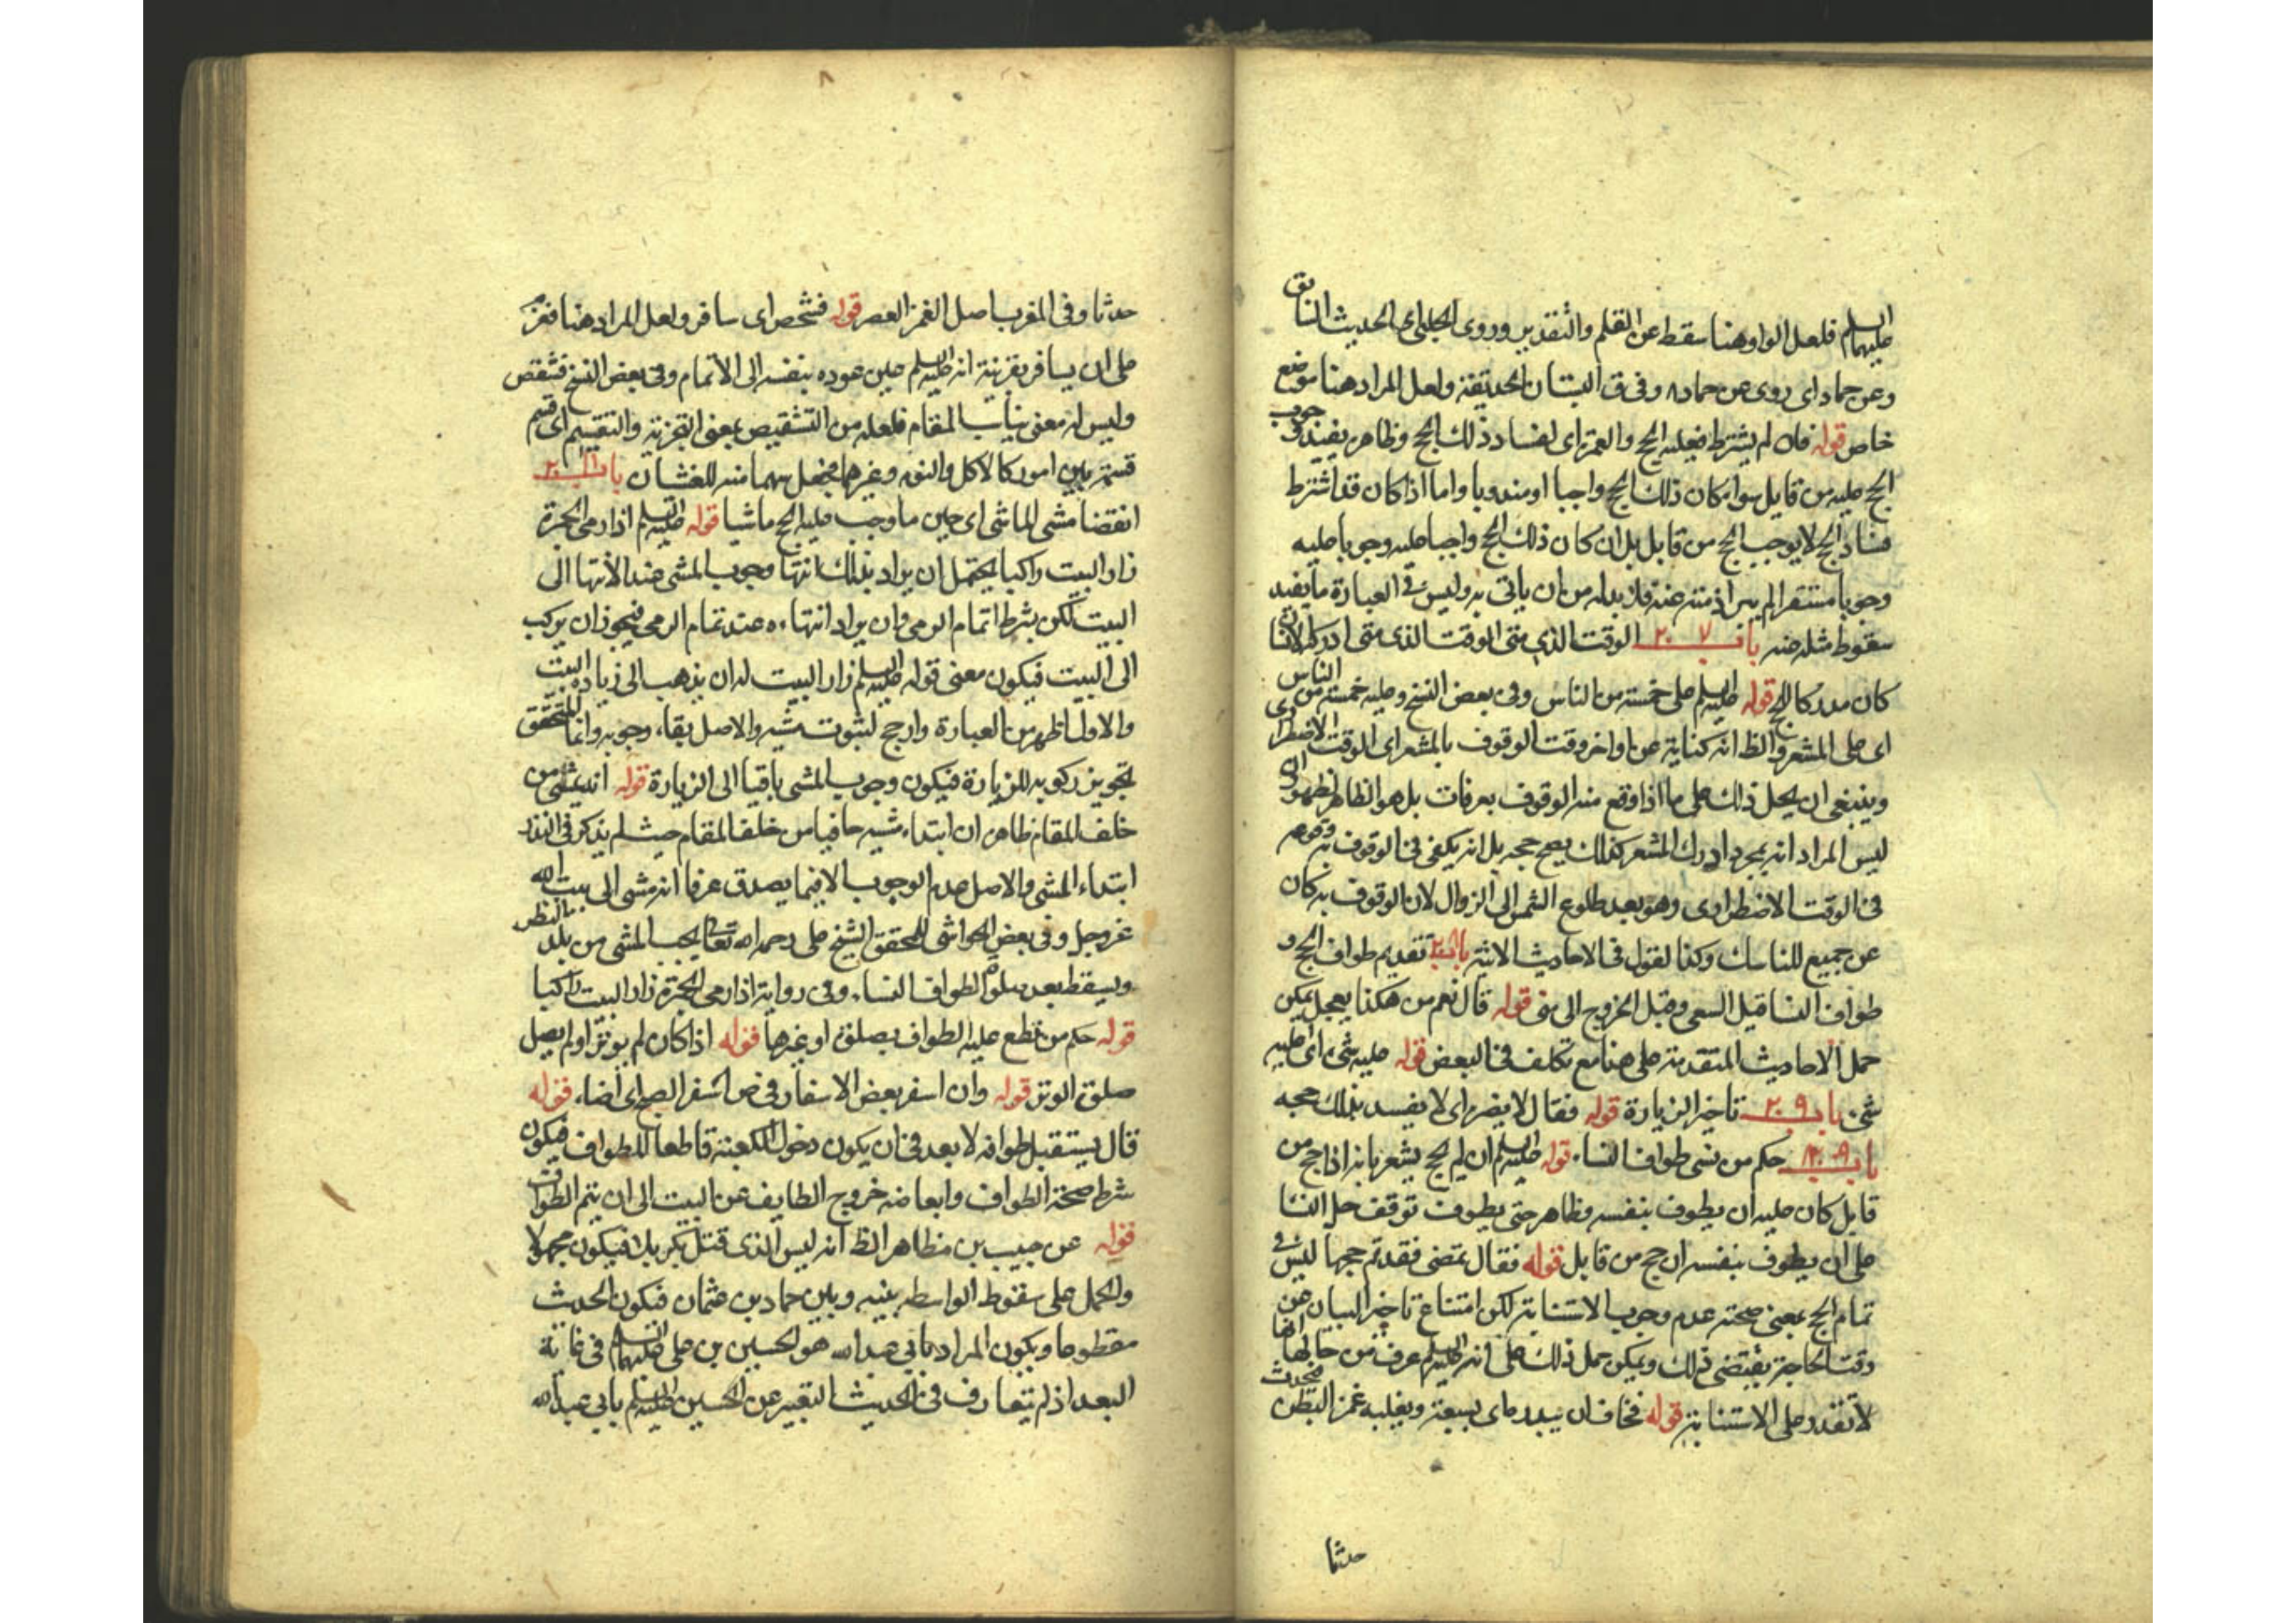 عليهما السلم فلعل الواو هنا سقط عن القلم والتقدير وروى الحلبي اى الحديث السابق
وعن حماد اى روى عن حماد ٨ وفى ق البستان الحديقة ولعل المراد هنا موضع
خاص قوله فان لم يشترط فعليه الحج والعمرة اى لفساد ذلك الحج وظاهره يفيد وجوب
الحج عليه من قابل سواء كان ذلك الحج واجبا او مندوبا واما اذا كان قد اشترط
فساد الحج لا يوجب الحج من قابل بل ان كان ذلك الحج واجبا عليه وجوبا عليه
وجوبا مستقرا لم يبر اذمته عنه فلا بد له من ان ياتى به وليس فى العبارة ما يفيد
سقوط مثله عنه باب ٢٠٧ الوقت الذى متى الوقت الذى متى ادركه الانسان
كان مدركا للحج قوله عليه السلم على خمسة من الناس وفى بعض النسخ وعليه خمسة من الناس
اى على المشعر والظ انه كناية عن اواخر وقت الوقوف بالمشعر اى الوقت الاضطرارى
وينبغى ان يحمل ذلك على ما اذا وقع منه الوقوف بعرفات بل هو الظاهر لظهور ان
ليس المراد انه بمجرد ادراك المشعر كذلك يصح حجه بل انه يكفى فى الوقوف به وقوعه
فى الوقت الاضطرارى وهو بعد طلوع الشمس الى الزوال لان الوقوف به كان
عن جميع المناسك وكذا لقول فى الاحاديث الاتية باب ٢٠٨ تقديم طواف الحج و
طواف النسا قبل السعى وقبل الخروج الى منى قوله قال نعم من هكذا يعجل يمكن
حمل الاحاديث المتقدمة على هنا مع تكلف فى البعض قوله عليه شىء اى عليه
شى باب ٢٠٩ تاخير الزيارة قوله فقال لا يضر اى لا يفسد بذلك حجه
باب حكم من نسى طواف النساء قوله عليه السلم ان لم يحج يشعر بانه اذا حج من
قابل كان عليه ان يطوف بنفسه وظاهر حتى يطوف توقف حل النسا
على ان يطوف بنفسه ان حج من قابل قوله فقال تمضى فقد تم حجها ليس فى
تمام الحج بمعنى صحته عدم وجوب الاستنابة لكن امتناع تاخير البيان عن
وقت الحاجة يقتضى ذلك ويمكن حمل ذلك على انه عليه السلم عرف من حالها انها
لا تقدر على الاستنابة قوله فخاف ان يبدره اى يسبقه ويغلبه غمز البطن فيحدث
حدثا
حدثا وفى المغرب اصل الغمز العصر قوله فشخص اى سافر ولعل المراد هنا فعزم
على ان يسافر بقرينة انه عليه السلم حين عوده بنفسه الى الاتمام وفى بعض النسخ فشقص
وليس له معنى يناسب المقام فلعله من التشقيص بمعنى التجزية والتقسيم اى قسم
قسمته بين امور كالاكل والنوم وغيرهما فجعل سهما منه للغشيان باب
انقضا مشى الماشى اى حين ما وجب عليه الحج ماشيا قوله عليه السلم اذا رمى الجمرة
زار البيت راكبا يحتمل ان يراد بذلك انتها وجوب المشى عند الانتها الى
البيت لكن بشرط اتمام الرمى وان يراد انتهاءه عند تمام الرمى فيجوز ان يركب
الى البيت فيكون معنى قوله عليه السلم زار البيت له ان يذهب الى زيارة البيت
والاول اظهر من العبارة وارجح لثبوت مشيه والاصل بقاء وجوبه وانما المتحقق
تجويز ركوبه للزيارة فيكون وجوب المشى باقيا الى الزيارة قوله انه يمشى من
خلف المقام ظاهره ان ابتداء مشيه حافيا من خلف المقام حيث لم يذكر فى النذر
ابتداء المشى والاصل عدم الوجوب الا فيما يصدق عرفا انه مشى الى بيت الله
عز وجل وفى بعض الحواشى للمحقق الشيخ على رحمه الله تعالى يجب المشى من بلد النذر
ويسقط بعد طواف النساء وفى رواية اذا رمى الجمرة زار البيت راكبا
قوله حكم من قطع عليه الطواف بصلوة او غيرها قوله اذا كان لم يوتر او لم يصل
صلوة الوتر قوله وان اسفر بعض الاسفار فى ص اسفر الصبح اى اضاء قوله
قال يستقبل طوافه لا بعد فى ان يكون دخول الكعبة قاطعا للطواف فيكون
شرط صحة الطواف وابعاضه خروج الطايف عن البيت الى ان يتم الطواف
قوله عن حبيب بن مظاهر الظ انه ليس الذى قتل بكربلا فيكون مجهولا
والحمل على سقوط الواسطه بينه وبين حماد بن عثمان فيكون الحديث
مقطوعا ويكون المراد بابى عبد الله هو الحسين بن على عليهما السلم فى غاية
البعد اذ لم يتعارف فى الحديث التعبير عن الحسين عليه السلم بابى عبد الله